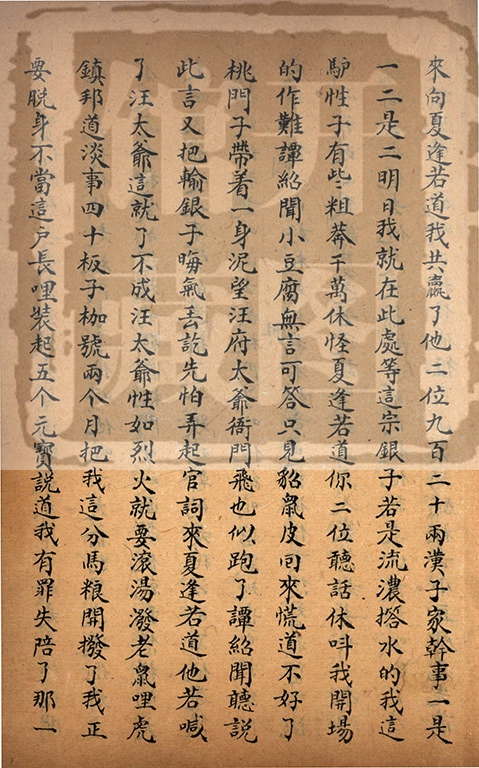 來向夏逢若道我共贏了他二位九百二十兩漢子家幹事一是
一二是二明日我就在此處等這宗銀子若是流濃搭水的我這
馿性子有些粗莽千萬休怪夏逢若道你二位聽話休呌我開場
的作難譚紹聞小豆腐無言可答只見貂鼠皮回來慌道不好了
桃門子帶着一身泥望汪府太爺衙門飛也似跑了譚紹聞聽説
此言又把輸銀子晦氣丢訖先怕弄起官詞來夏逢若道他若喊
了汪太爺這就了不成汪太爺性如烈火就要滾湯潑老鼠哩虎
鎮邦道淡事四十板子枷號兩个月把我這分馬粮開撥了我正
要脱身不當這户長哩裝起五个元寶説道我有罪失陪了那一